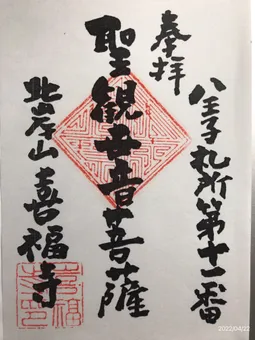 奉拝
八王子札所第十一番
聖観世音菩薩
岩山喜福寺
2022/04/22